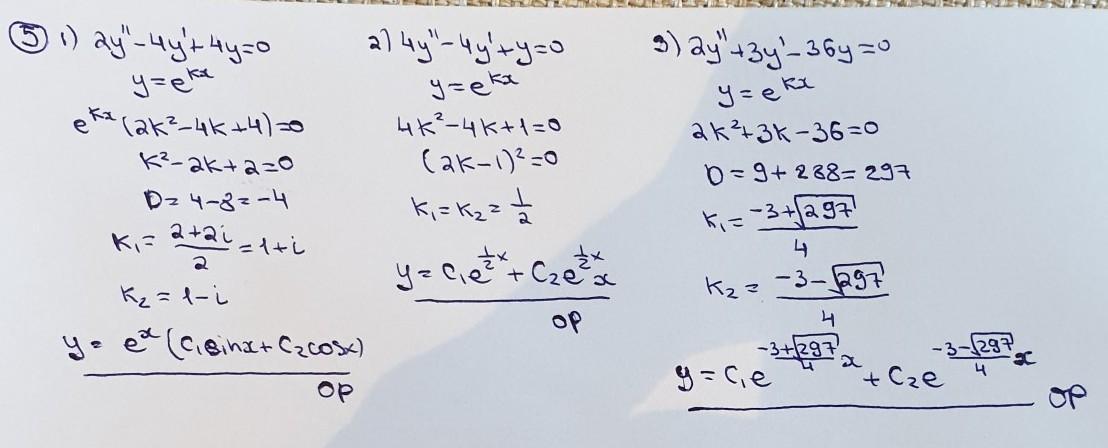 5 1) 2y''-4y'+4y=0
y=e^{kx}
e^{kx}(2k²-4k+4)=0
k²-2k+2=0
D=4-8=-4
k₁=\frac{2+2i}{2}=1+i
k₂=1-i
y=e^x(c₁sinx+c₂cosx)
op
2) 4y''-4y'+y=0
y=e^{kx}
4k²-4k+1=0
(2k-1)²=0
k₁=k₂=\frac{1}{2}
y=c₁e^{\frac{1}{2}x}+c₂e^{\frac{1}{2}x}x
op
3) 2y''+3y'-36y=0
y=e^{kx}
2k²+3k-36=0
D=9+288=297
k₁=\frac{-3+\sqrt{297}}{4}
k₂=\frac{-3-\sqrt{297}}{4}
y=c₁e^{\frac{-3+\sqrt{297}}{4}x}+c₂e^{\frac{-3-\sqrt{297}}{4}x}
op